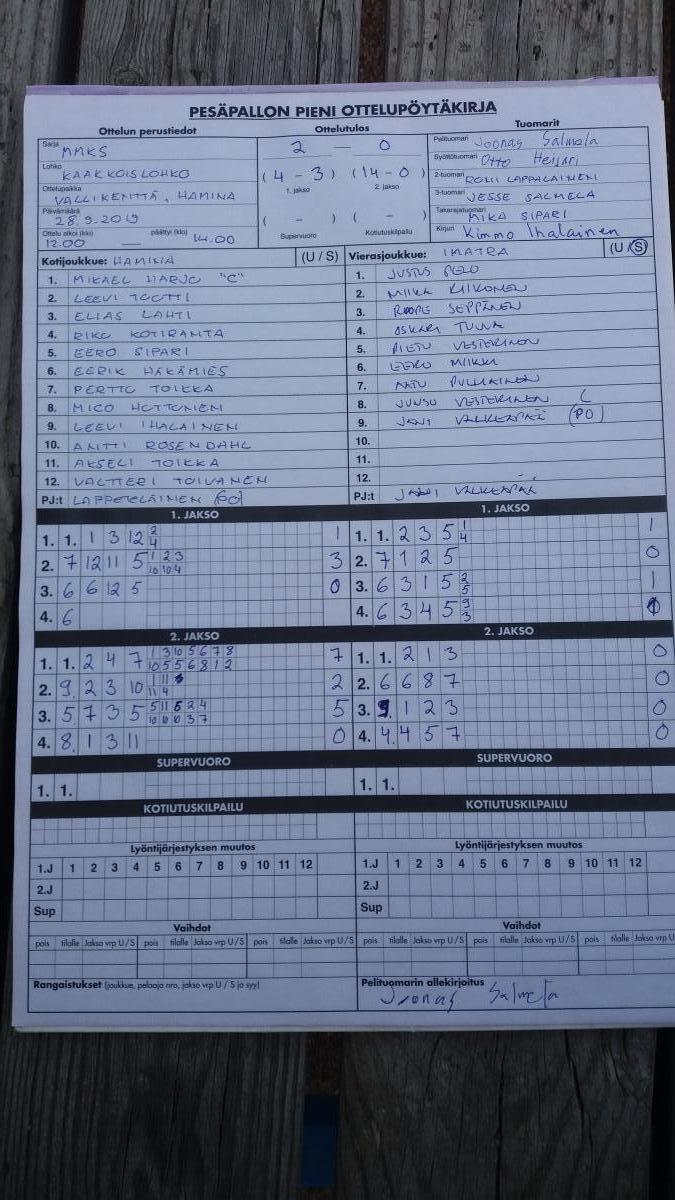 PESÄPALLON PIENI OTTELUPÖYTÄKIRJA
Ottelun perustiedot
Ottelutulos
Tuomarit
Sarja MMKS
Lohko KAAKKOISLOHKO
Ottelupaikka VALLIKENTTÄ, HAMINA
Päivämäärä 28.9.2019
Ottelu alkoi (klo) päättyi (klo)
12.00 — 14.00
2 — 0
(4 - 3) (14 - 0)
1. jakso 2. jakso
( - ) ( - )
Supervuoro Kotiutuskilpailu
Pelituomari Joonas Salmela
Syöttötuomari Otto
2-tuomari RONI LAPPALAINEN
3-tuomari JESSE SALMELA
Takarajatuomari MIKA SIPARI
Kirjuri Kimmo Ihalainen
Kotijoukkue: HAMINA (U / S)
1. MIKAEL HARJU "C"
2. LEEVI TOOTTI
3. ELIAS LAHTI
4. RIKU KOTIRANTA
5. EERO SIPARI
6. EERIK HÄKÄMIES
7. PERTTU TOIKKA
8. MICO HUTTUNEN
9. LEEVI IHALAINEN
10. ANTTI ROSENDAHL
11. AKSELI TOIKKA
12. VALTTERI TOIVANEN
PJ:t LAPPETELÄINEN (PO)
Vierasjoukkue: IMATRA (U / S)
1. JUSTUS
2. MIIKA KIIKONEN
3. ROOPE SEPPÄNEN
4. OSKARI TUUVA
5. PIETU VESTERINEN
6. EERO MIIKKI
7. AATU PULLIAINEN
8. JUUSO VESTERINEN C
9. JANI VALKEAPÄÄ (PO)
10.
11.
12.
PJ:t JANI VALKEAPÄÄ
1. JAKSO
1. 1. 1 3 12 2 4 1
2. 7 12 11 5 1 2 3 10 10 4 3
3. 6 6 12 5 0
4. 6
1. JAKSO
1. 1. 2 3 5 1 4 1
2. 7 1 2 5 0
3. 6 3 1 5 2 5 1
4. 6 3 4 5 9 3
2. JAKSO
1. 1. 2 4 7 1 3 10 5 6 7 8 10 5 5 6 8 1 2 7
2. 9 2 3 10 1 11 11 4 2
3. 5 7 3 5 5 11 6 2 4 10 10 10 3 7 5
4. 8 1 3 11 0
2. JAKSO
1. 1. 2 1 3 0
2. 6 6 8 7 0
3. 9 1 2 3 0
4. 4 4 5 7 0
SUPERVUORO
1. 1.
SUPERVUORO
1. 1.
KOTIUTUSKILPAILU
KOTIUTUSKILPAILU
Lyöntijärjestyksen muutos
1.J 1 2 3 4 5 6 7 8 9 10 11 12
2.J
Sup
Lyöntijärjestyksen muutos
1.J 1 2 3 4 5 6 7 8 9 10 11 12
2.J
Sup
Vaihdot
pois tilalle Jakso vrp U/S pois tilalle Jakso vrp U/S pois tilalle Jakso vrp U/S
Vaihdot
pois tilalle Jakso vrp U/S pois tilalle Jakso vrp U/S pois tilalle Jakso vrp U
Rangaistukset (joukkue, pelaaja nro, jakso vrp U / S ja syy)
Pelituomarin allekirjoitus
Joonas Salmela